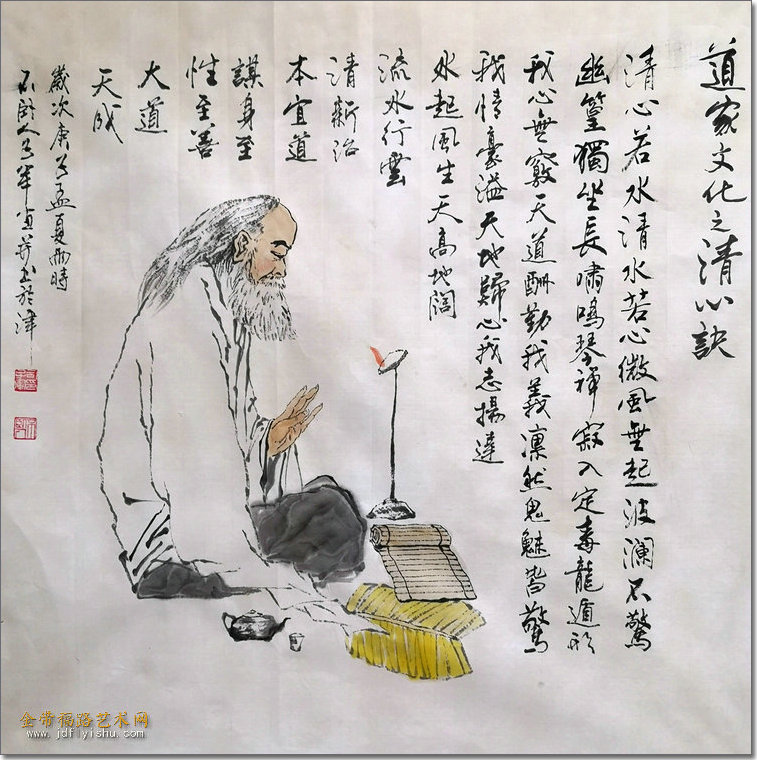 道家文化之清心訣
清心若水清水若心微風無起波瀾不驚
幽篁獨坐長嘯鳴琴禪寂入定毒龍遁形
我心無竅天道酬勤我義凜然鬼魅皆驚
我情豪溢天地歸心我志揚達
水起風生天高地闊
流水行雲
清新治
本宜道
謀身至
性至善
大道
天成
歲次庚子孟夏雨時
軍畫并書於津
金带福路艺术网
www.jdflyishu.com